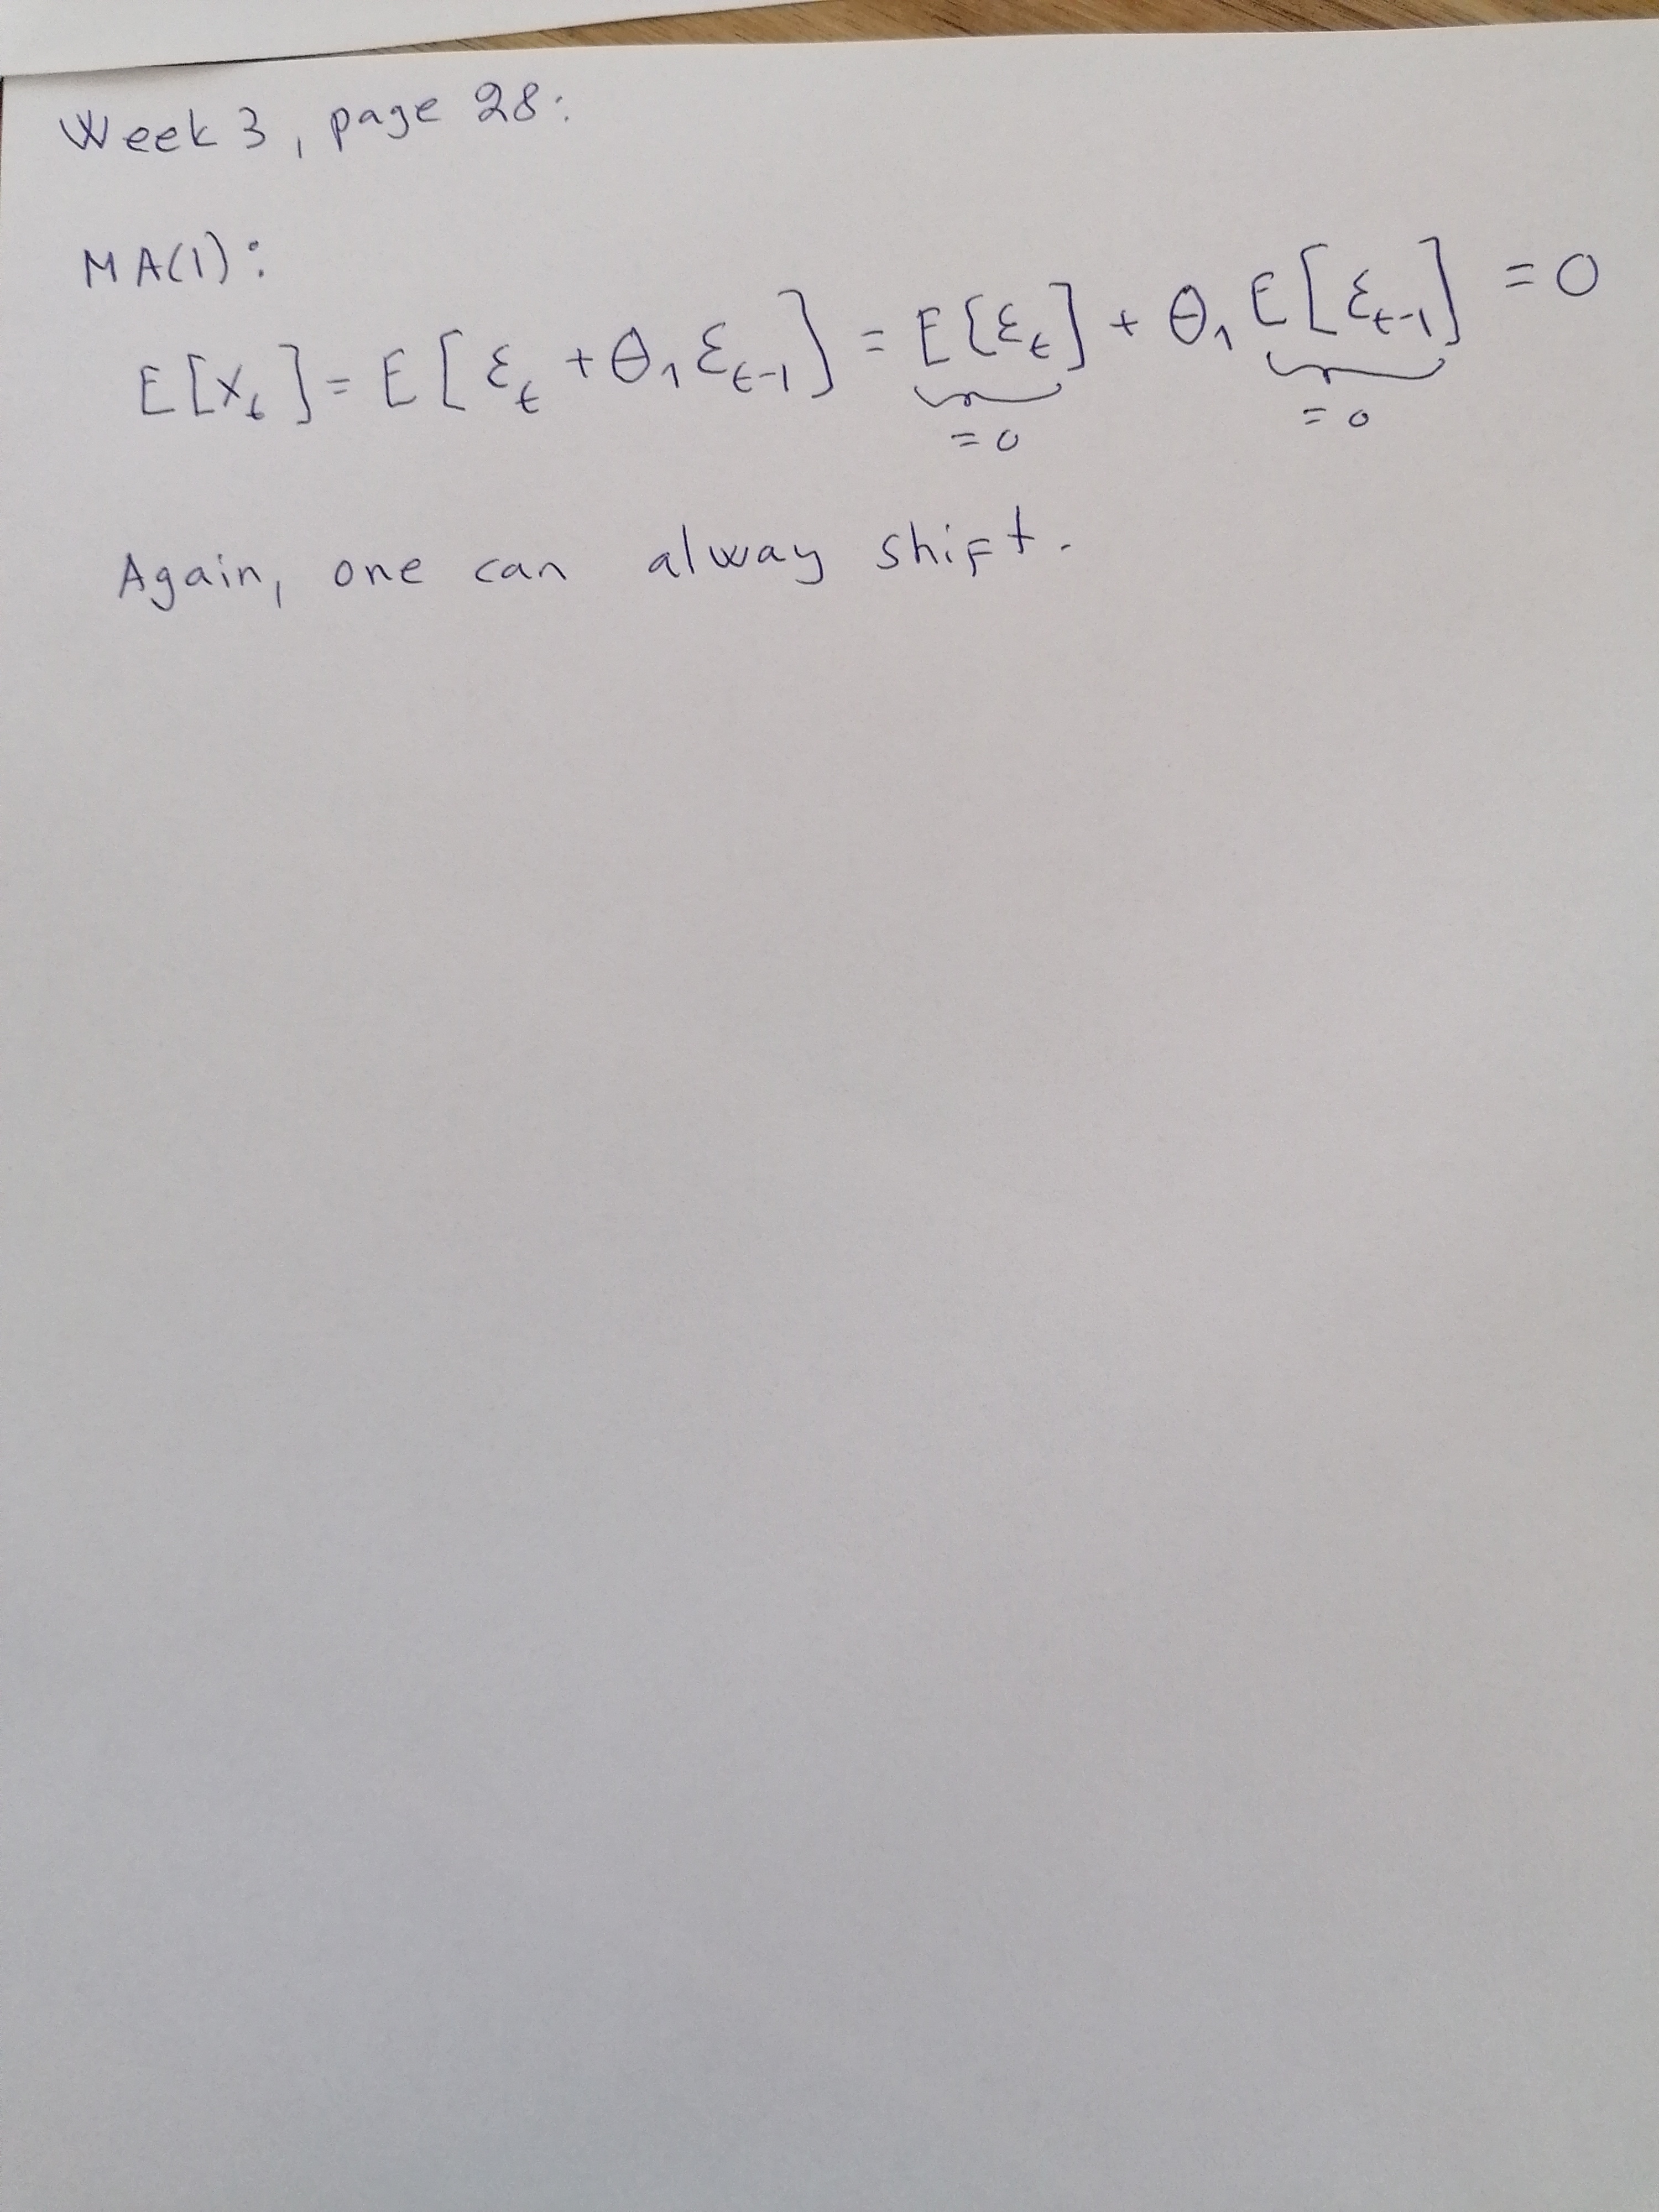 Week 3, page 28:
MA(1):
E[X_t] = E[ε_t + θ_1 ε_{t-1}] = E[ε_t] + θ_1 E[ε_{t-1}] = 0
= 0 = 0
Again, one can alway shift.